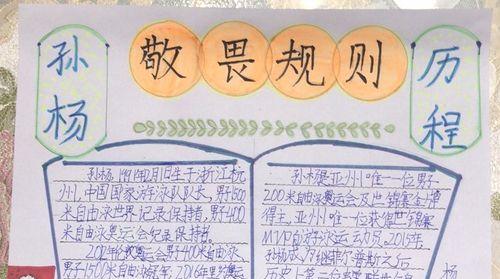 孙杨
敬畏规则
历程
孙杨,1991年12月1日生于浙江杭
州,中国国家游泳队队长,男子1500
米自由泳世界记录保持者,男子400
米自由泳奥运会纪录保持者。
2012年伦敦奥运会男子400米自由泳、
男子1500米自由泳冠军;2016年里约奥
孙杨是亚州唯一一位男子
200米自由泳奥运会及世锦赛金牌
得主,亚州唯一一位获得世锦赛
MVP的游泳运动员。2015年
孙杨成为继菲尔普斯之后
历史上第二位
杨